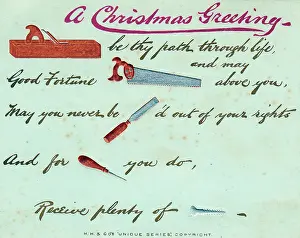 A Christmas Greeting
be thy path through life
and may
Good Fortune above you,
May you never be 'd out of your rights
And for you do,
Receive plenty of
H.H. & Co's "UNIQUE SERIES" COPYRIGHT.